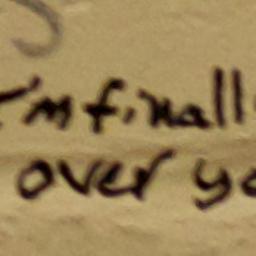 I'm finall
over yo